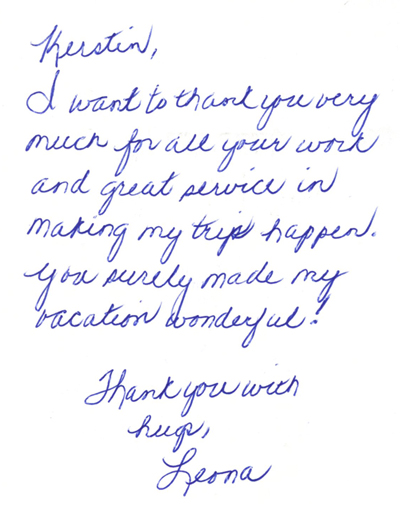 Kerstin,
I want to thank you very
much for all your work
and great service in
making my trip happen.
You surely made my
vacation wonderful!
Thank you with
hugs,
Leona